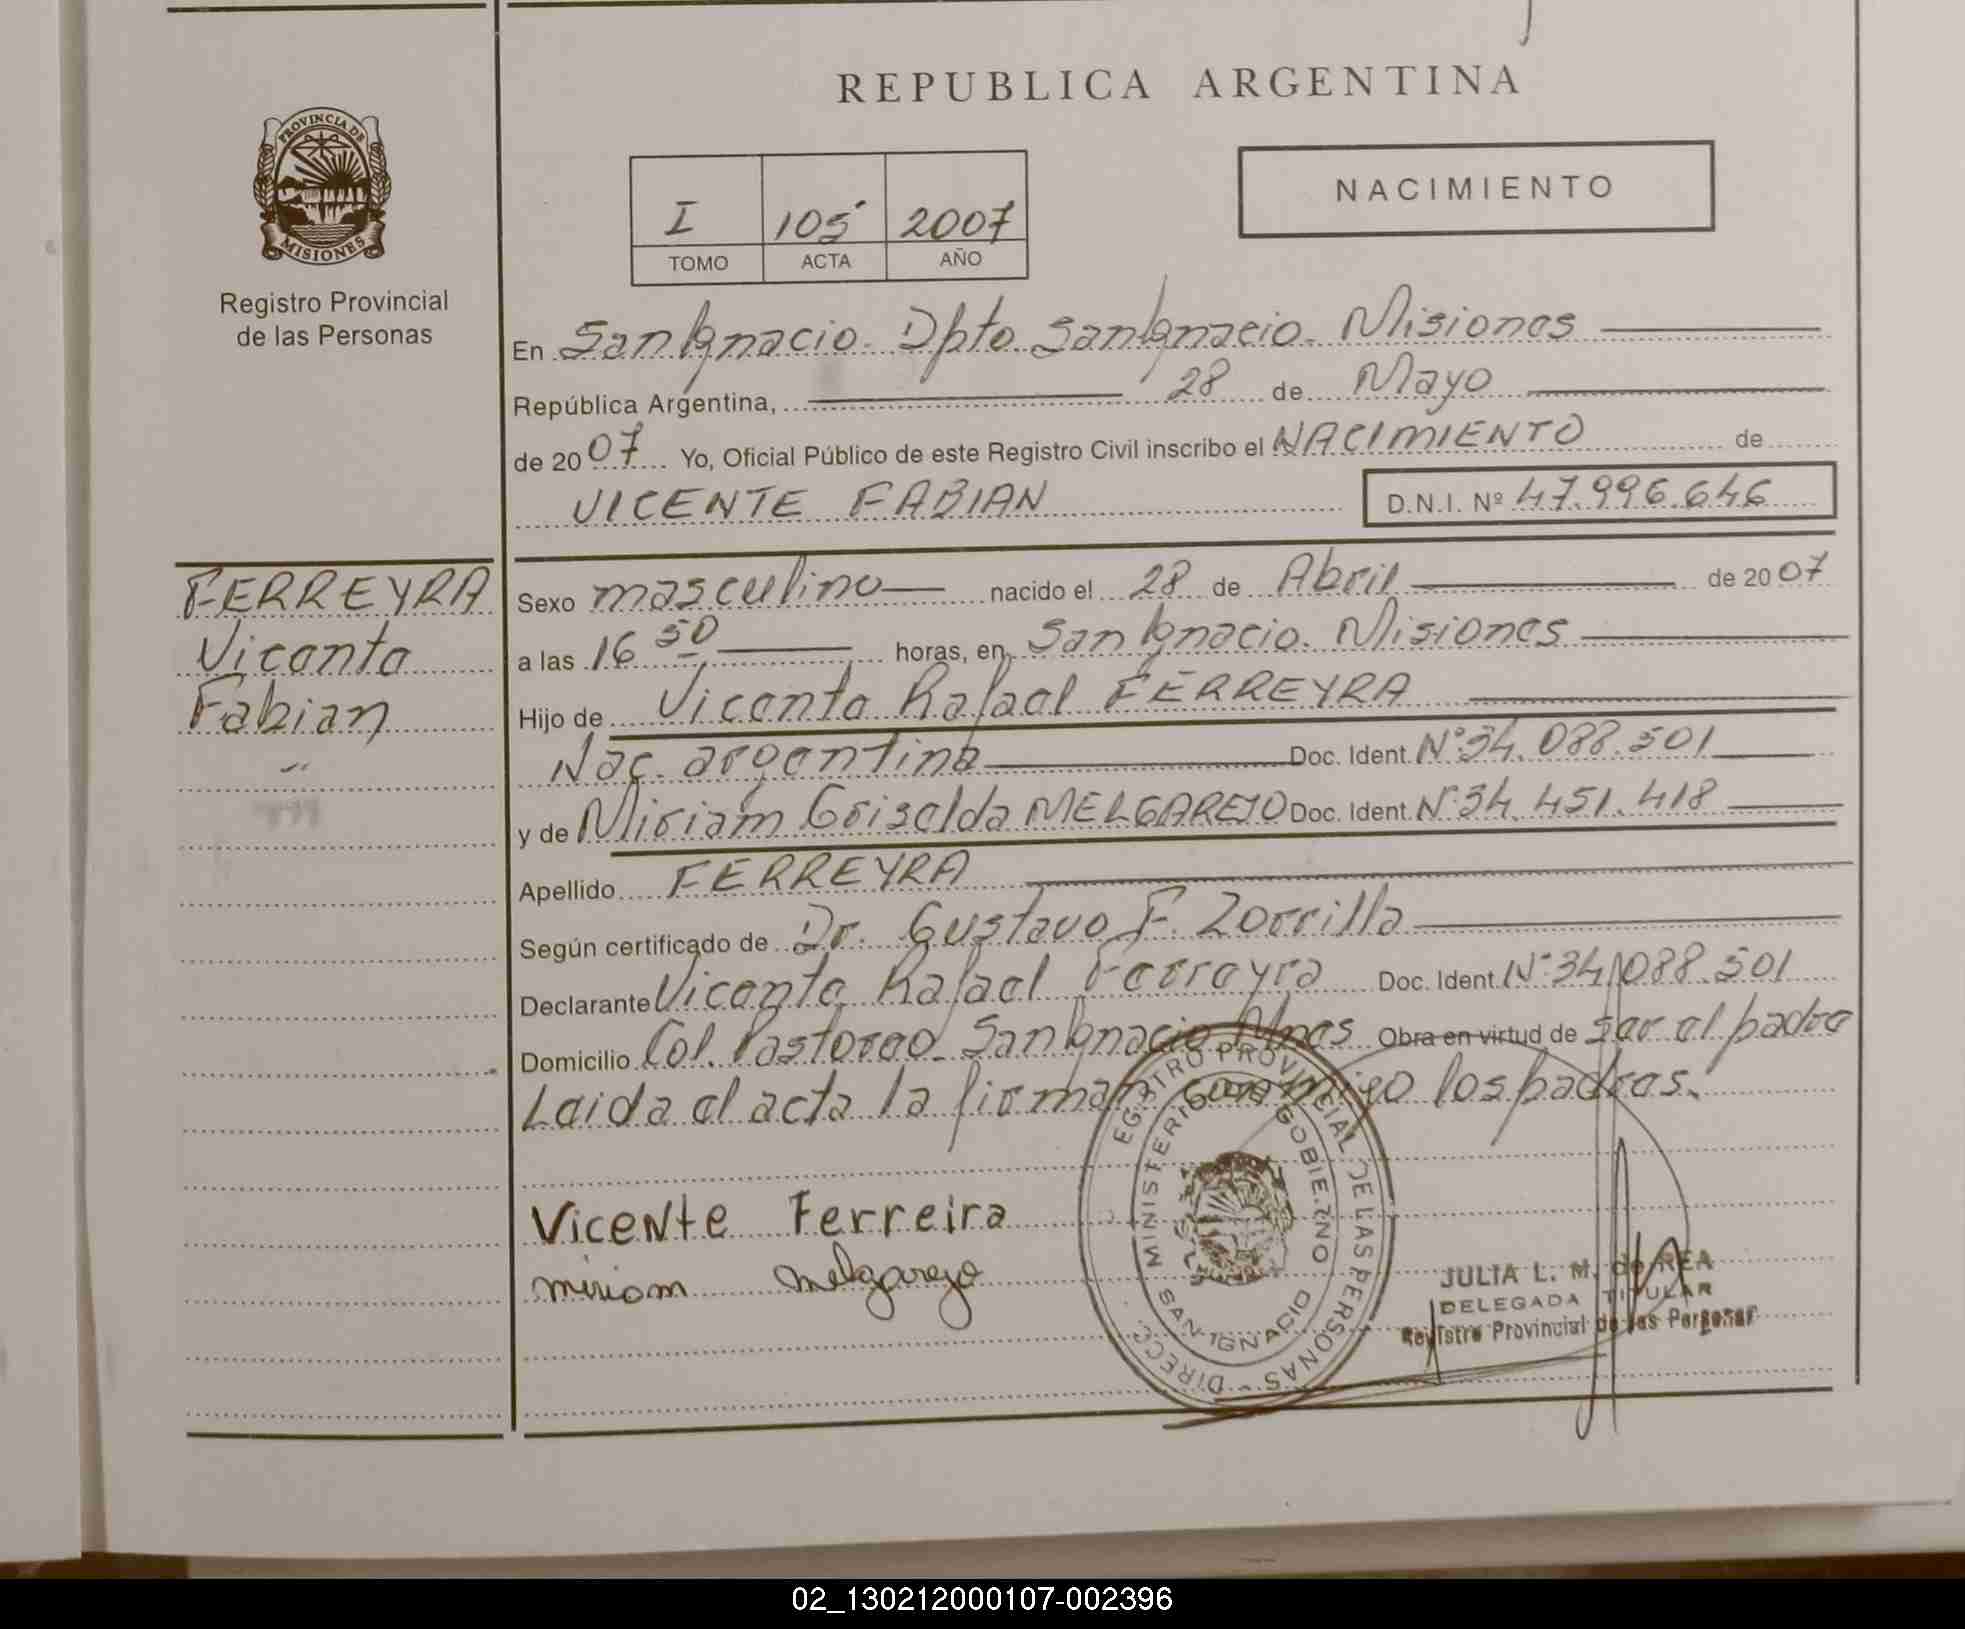 REPUBLICA ARGENTINA
PROVINCIA DE
MISIONES
Registro Provincial
de las Personas
NACIMIENTO
I 105 2007
TOMO ACTA AÑO
En San Ignacio. Dpto San Ignacio. Misiones
República Argentina, 28 de Mayo
de 2007 Yo, Oficial Público de este Registro Civil inscribo el NACIMIENTO de
VICENTE FABIAN D.N.I. Nº 47.996.646
FERREYRA
Vicente
Fabian
Sexo masculino nacido el 28 de Abril de 2007
a las 16 50 horas, en San Ignacio. Misiones
Hijo de Vicente Rafael FERREYRA
Nac. argentina Doc. Ident. Nº 34.088.501
y de Miriam Griselda MELGAREJO Doc. Ident. Nº 34.451.418
Apellido FERREYRA
Según certificado de Dr. Gustavo F. Zorrilla
Declarante Vicente Rafael Ferreyra Doc. Ident. Nº 34.088.501
Domicilio Col. Pastoreo. San Ignacio Mnes Obra en virtud de ser el padre
Leida el acta la firman conmigo los padres.
Vicente Ferreira
miriam melgarejo
DIRECC. REGISTRO PROVINCIAL DE LAS PERSONAS
MINISTERIO DE GOBIERNO
SAN IGNACIO
JULIA L. M. de REA
DELEGADA TITULAR
Registro Provincial de las Personas
02_130212000107-002396